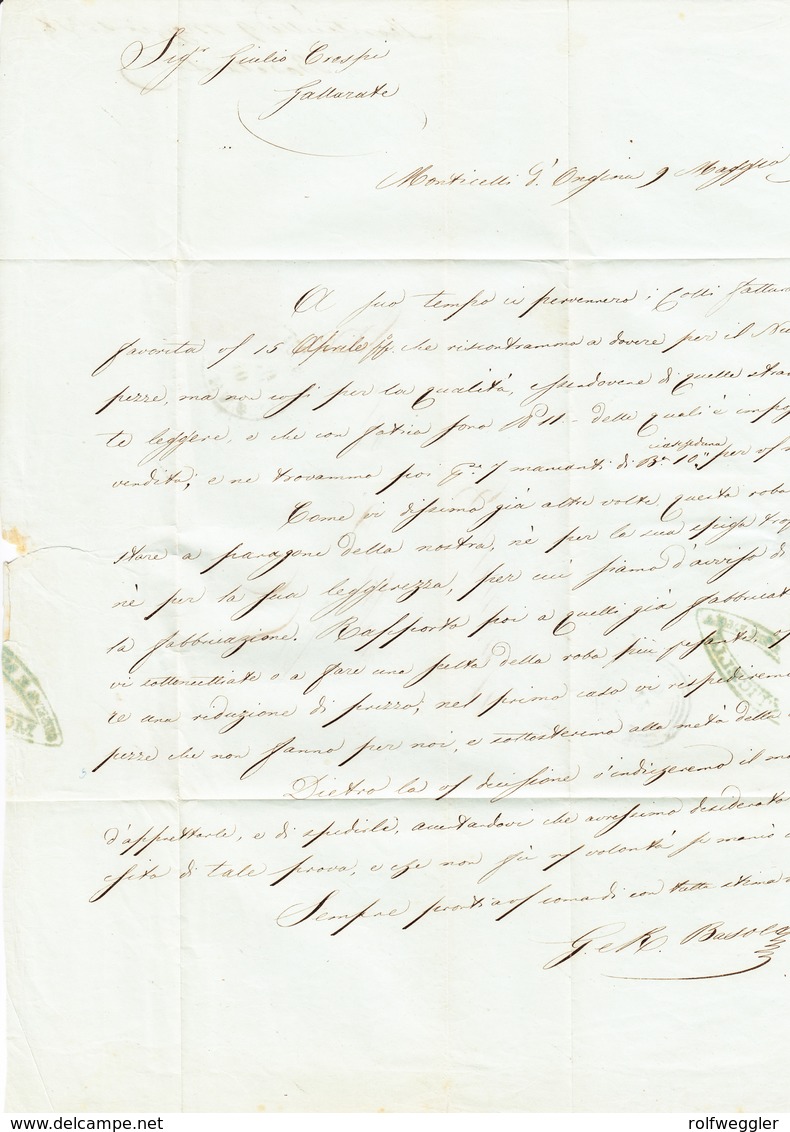 Sigr. Giulio Crospi
Gallarate
Monticelli d'Ongina 9 Maggio
A suo tempo ci pervennero i Colli fattura
favorita vs 15 Aprile che riscontrammo a dovere per il Nu
pezze, ma non così per la qualità, essendovene di quelle stra
te leggere, e che con fatica sono delle quali è imps
vendita; e ne trovammo poi 7 mancanti di ciascheduna Br. 10,, per
Come vi dissimo già altre volte, questa roba
stare a paragone della nostra, nè per la sua spiga trop
nè per la sua leggerezza, per cui siamo d'avviso di
la fabbricazione. Rapporto poi a quelli già fabbricat
vi sottomettiate o a fare una pelta della roba più pesante, o
re una riduzione di prezzo; nel primo caso vi rispediremo
pezze che non fanno per noi, e sottostesimo alla metà della
Dietro la vs decisione v'indicheremo il mo
d'apprettarle, e di spedirle, accertandovi che avressimo desiderato
scita di tale prova, e che non fù ns volontà se
Sempre pronti a vs comandi con tutta stima
G. e R. Basola
rolfweggler